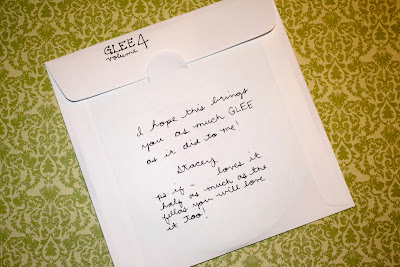 GLEE 4
volume
I hope this brings
you as much GLEE
as it did to me!
Stacey
ps. if - loves it
half as much as the
fellas you will love
it too!